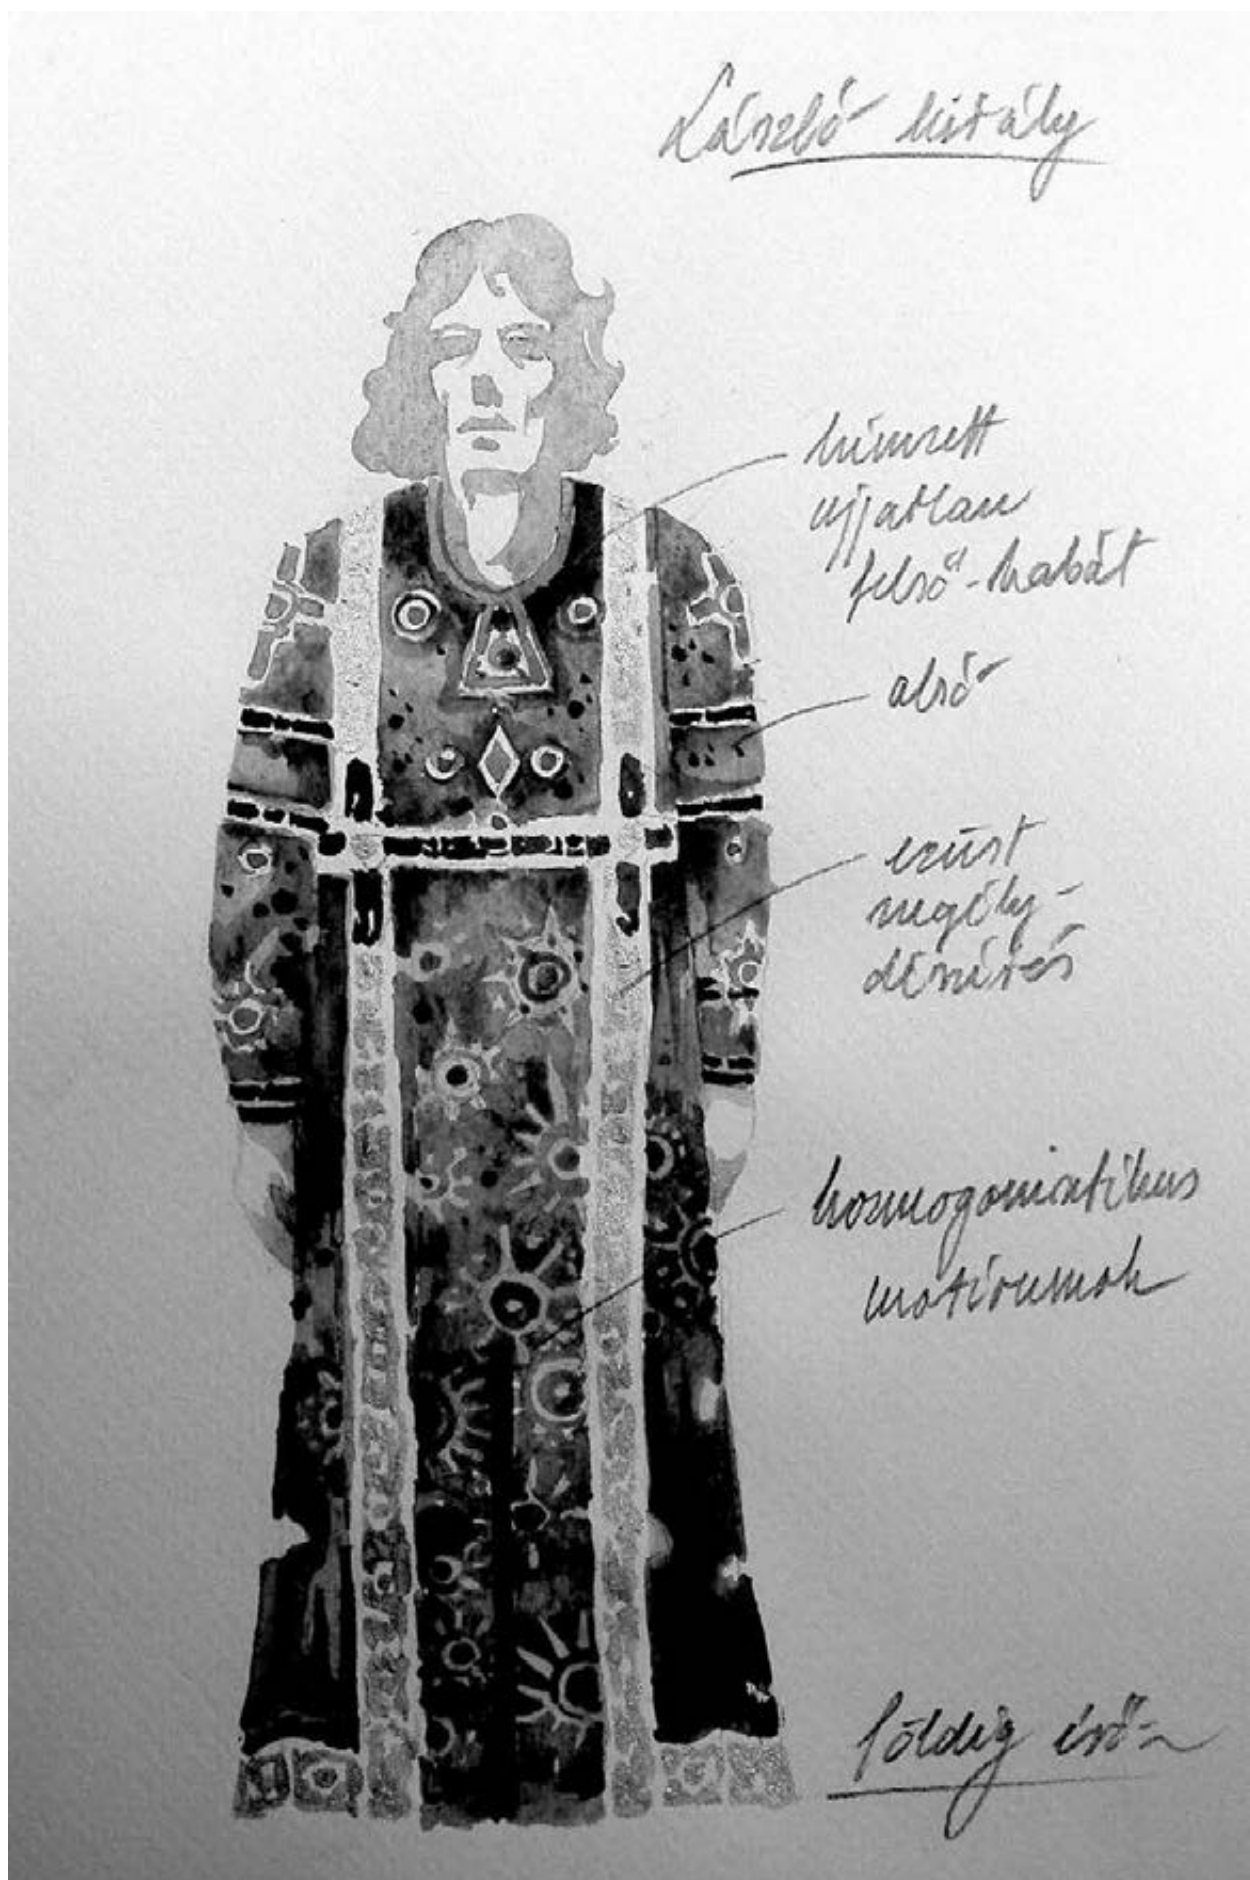 László király
hímzett
ujjatlan
felső-kabát
alsó
ezüst
szegély-
díszítés
kozmogonisztikus
motívumok
földig érő